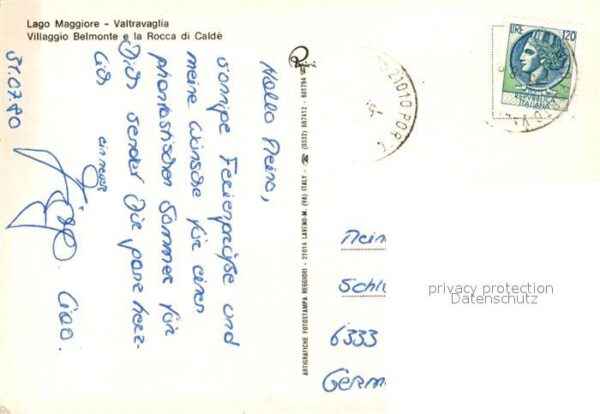 Lago Maggiore - Valtravaglia
Villaggio Belmonte e la Rocca di Caldè
31.07.80
Hallo Meine,
sonnige Feriengrüße und
meine Wünsche für einen
phantastischen Sommer für
Dich sendet Dir ganz herz-
lich
Ciao.
ARTIGRAFICHE FOTOSTAMPA REGGIORI - 21014 LAVENO-M. (VA) ITALY - ☎ (0332) 667412 - 601794
21010 POR
LIRE 120
REPUBBLICA
ITALIANA
Mein
Schl
6333
Germ
privacy protection
Datenschutz